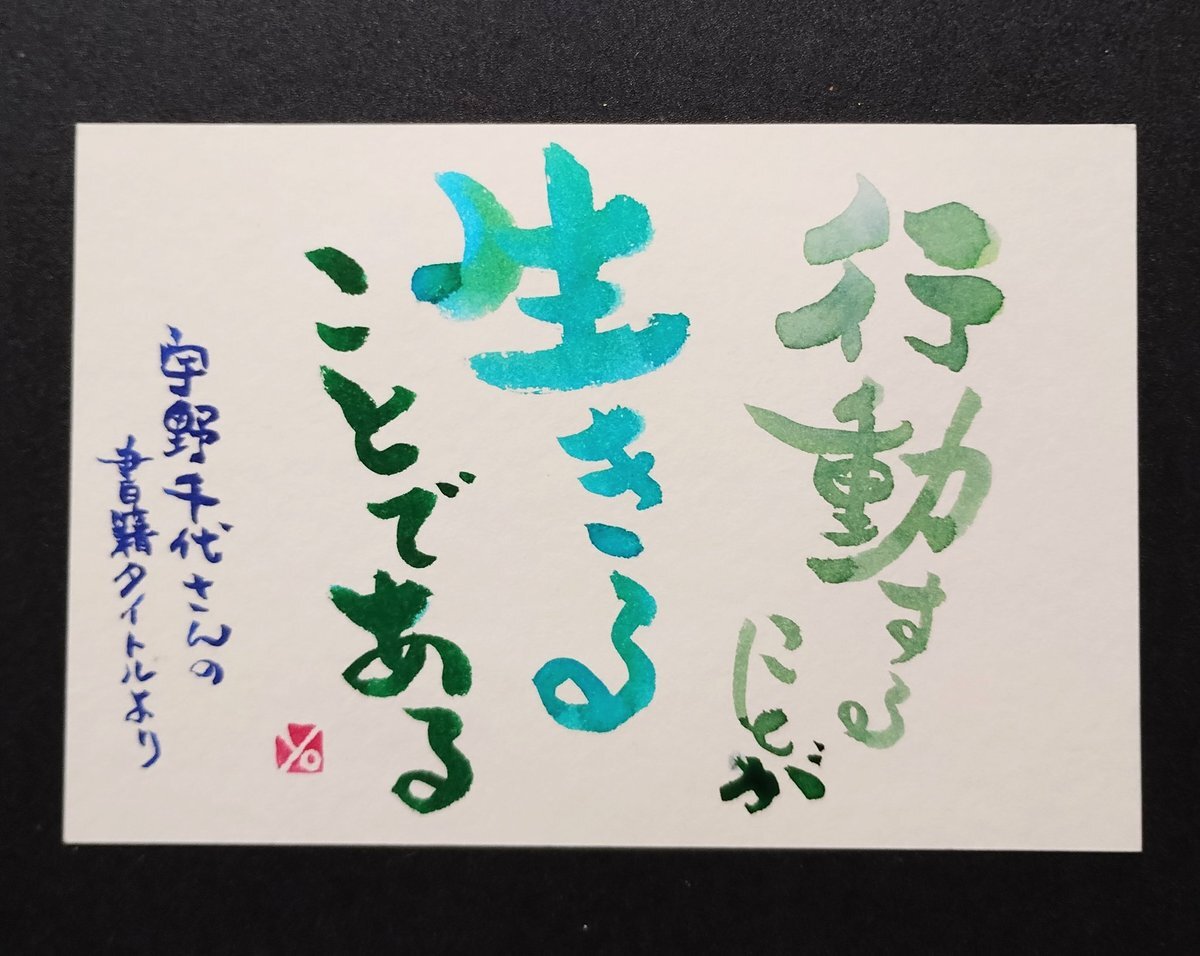 行動する
ことが
生きる
ことである
宇野千代さんの
書籍タイトルより
Yo